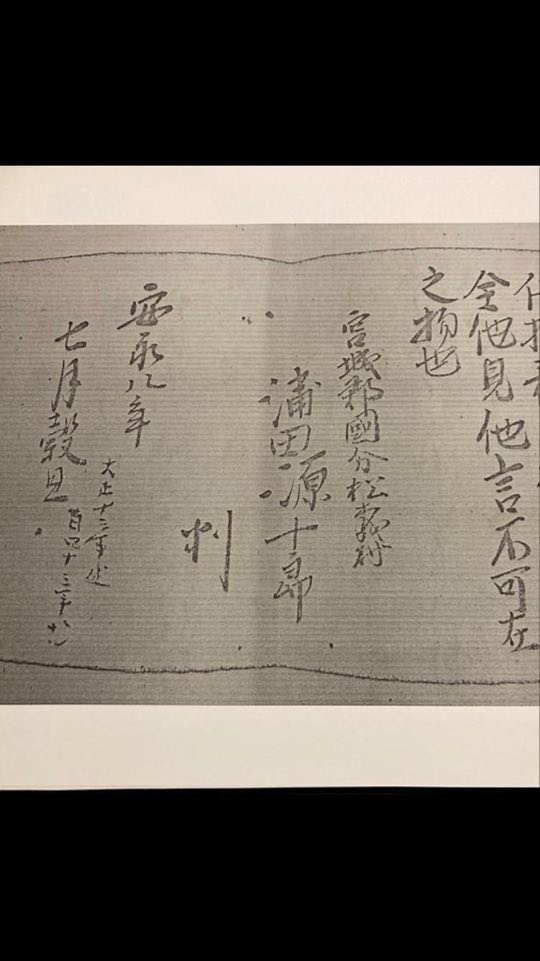 全他見他言不可在
之物也
宮城郡國分松森村
蒲田源十郎
判
安永八年
七月穀旦
大正十三年迄
百四十三年